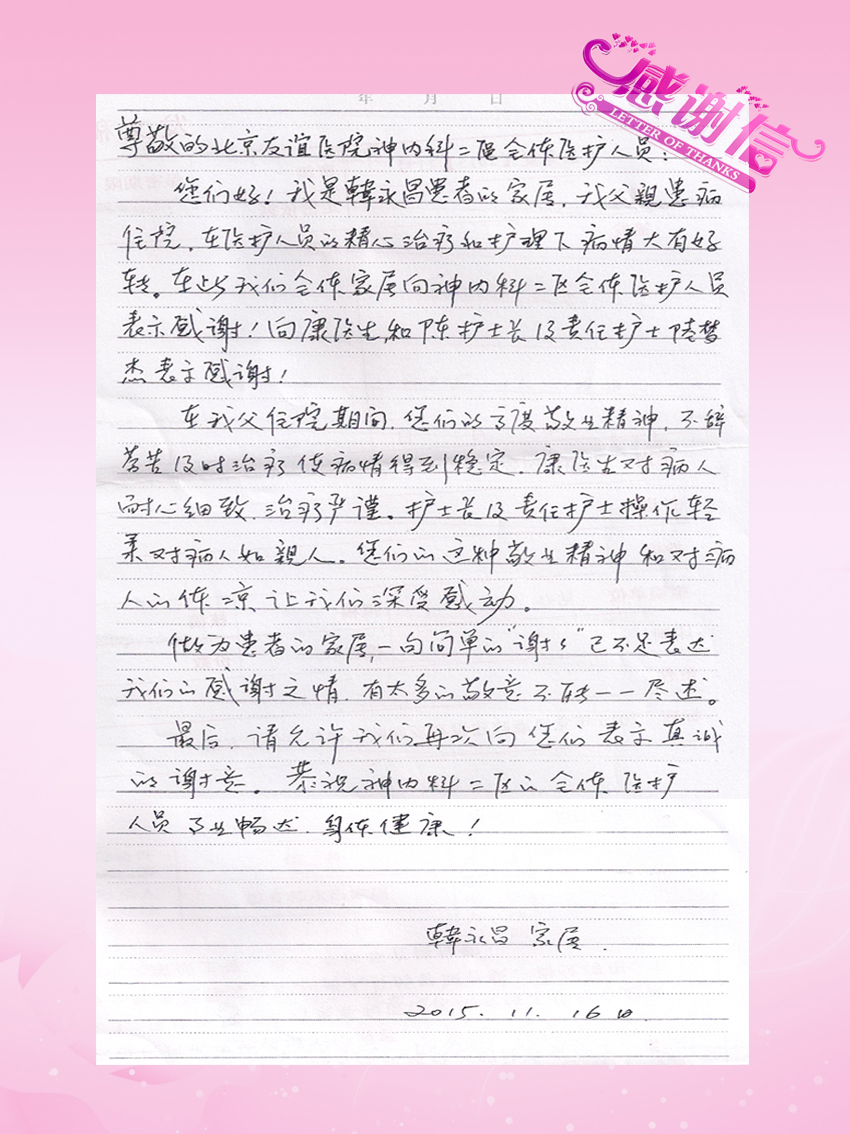 感谢信
LETTER OF THANKS
年 月 日
尊敬的北京友谊医院神内科二区全体医护人员：
您们好！我是韩永昌患者的家属，我父親患病
住院，在医护人员的精心治疗和护理下病情大有好
转。在此我们全体家属向神内科二区全体医护人员
表示感谢！向康医生和陈护士长及责任护士陆梦
杰表示感谢！
在我父住院期间，您们的高度敬业精神，不辞
劳苦及时治疗使病情得到稳定，康医生对病人
耐心细致，治疗严谨。护士长及责任护士操作轻
柔对病人如親人。您们的这种敬业精神和对病
人的体凉让我们深受感动。
做为患者的家属，一句简单的“谢谢”已不足表达
我们的感谢之情，有太多的敬意不能一一尽述。
最后，请允许我们再次向您们表示真诚
的谢意。恭祝神内科二区的全体医护
人员事业畅达，身体健康！
韩永昌家属
2015.11.16日